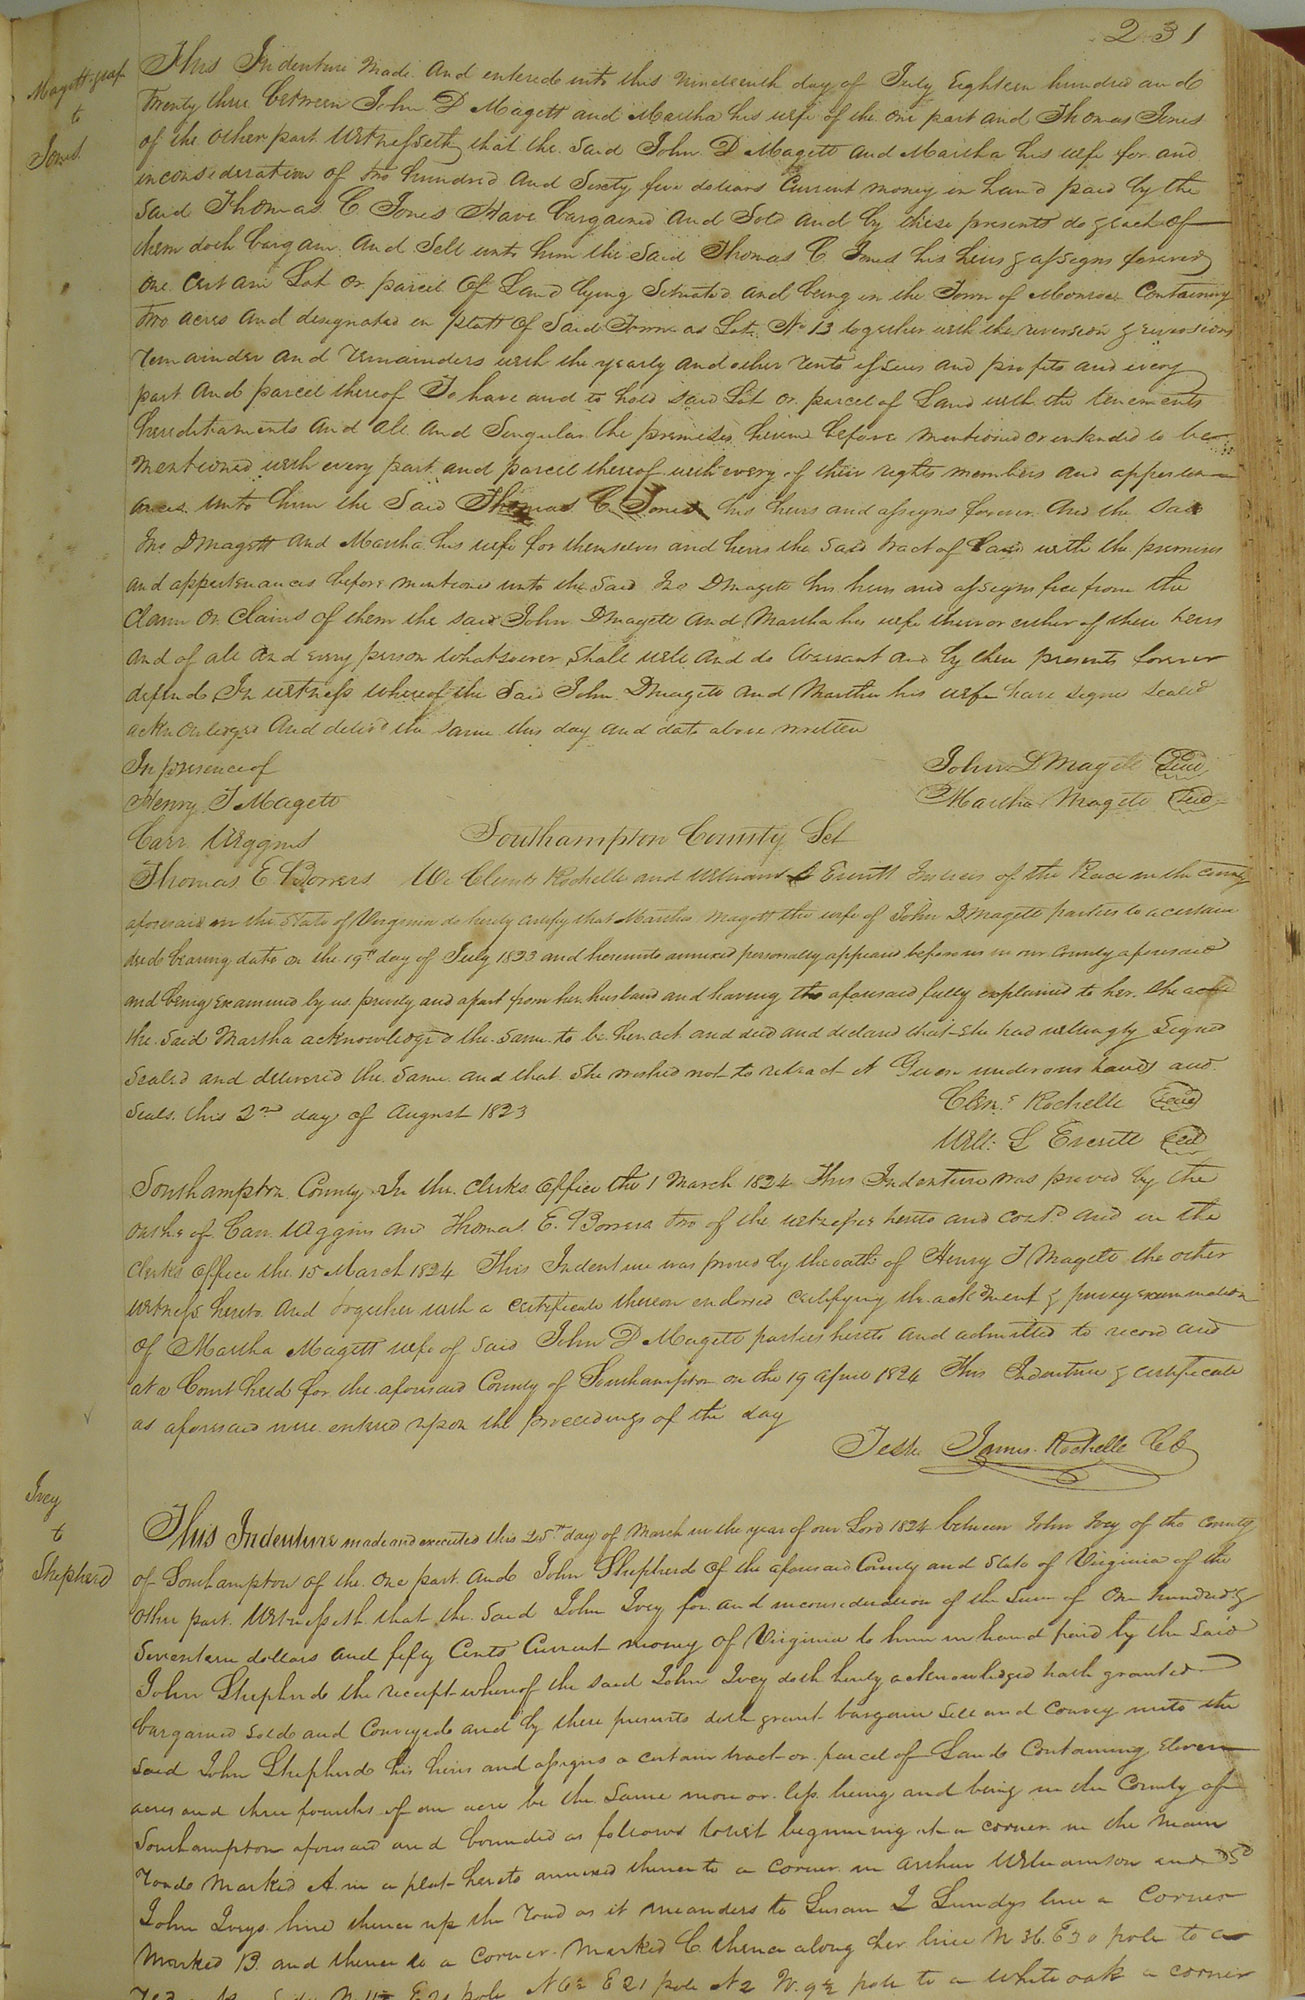 231
Magett & wf
to
Jones
This Indenture made and entered into this nineteenth day of July Eighteen hundred and
Twenty three between John D Magett and Martha his wife of the one part and Thomas Jones
of the other part Witnesseth that the said John D Magett and Martha his wife for and
inconsideration of two hundred and Sixty five dollars Current money in hand paid by the
said Thomas C Jones Have bargained and Sold and by these presents do & each of
them doth bargain and Sell unto him the Said Thomas C Jones his heirs & assigns forever
one certain Lot or parcel of Land lying Situated and being in the Town of Monroe Containing
two acres and designated in platt of Said Town as Lot No 13 together with the reversion & reversions
remainder and remainders with the yearly and other rents issues and profits and every
part and parcel thereof To have and to hold said Lot or parcel of Land with the tenements
hereditaments and all and Singular the premises herein before mentioned or intended to be
mentioned with every part and parcel thereof with every of their rights members and apperten
ances unto him the Said Thomas C Jones his heirs and assigns forever And the said
Jno D Magett and Martha his wife for themselves and heirs the said tract of Land with the premises
and appertenances before mentioned unto the said Jno D Magett his heirs and assigns free from the
Claim or Claims of them the said John D Magett and Martha his wife their or either of their heirs
and of all and every person whatsoever shall will and do warrant and by these presents forever
defend In witness whereof the Said John D Magett and Martha his wife have signed sealed
acknowledged and delivd the same this day and date above written
In presence of
John D Magett Seal
Henry J Magett
Martha Magett Seal
Carr Wiggins
Southampton County Sct
Thomas E Borrers We Clemts Rochelle and William L Everitt Justices of the Peace in the County
aforesaid in the State of Virginia do hereby certify that Martha Magett the wife of John D Magett parties to a certain
deed bearing date on the 19th day of July 1823 and hereunto annexed personally appeared before us in our County aforesaid
and being examined by us privily and apart from her husband and having the aforesaid fully explained to her she
the said Martha acknowledged the same to be her act and deed and declared that she had willingly Signed
Sealed and delivered the same and that she wished not to retract it Given under our hands and
Seals this 2nd day of August 1823
Clemt Rochelle Seal
Will: L Everitt Seal
Southampton County In the clerks office the 1 March 1824 This Indenture was proved by the
oaths of Carr Wiggins and Thomas E. Borrers two of the witnesses hereto and contd and in the
clerks office the 15 March 1824 This Indenture was proved by the oath of Henry J Magett the other
witness hereto And together with a certificate thereon endorsed certifying the ackdment & privy examination
of Martha Magett wife of said John D Magett parties hereto and admitted to record and
at a Court held for the aforesaid County of Southampton on the 19 april 1824 This Indenture & certificate
as aforesaid were entered upon the proceedings of the day
Teste James Rochelle CC
Ivey
to
Shepherd
This Indenture made and executed this 25th day of March in the year of our Lord 1824 between John Ivey of the County
of Southampton of the one part and John Shepherd of the aforesaid County and State of Virginia of the
other part Witnesseth that the said John Ivey for and inconsideration of the sum of One hundred &
Seventeen dollars and fifty Cents Current money of Virginia to him in hand paid by the said
John Shepherd the receipt whereof the said John Ivey doth hereby acknowledged hath granted
bargained sold and Conveyed and by these presents doth grant bargain sell and Convey unto the
said John Shepherd his heirs and assigns a certain tract or parcel of Land Containing Eleven
acres and three fourths of an acre be the same more or less lieing and being in the County of
Southampton aforesaid and bounded as follows towit beginning at a corner in the main
road marked A in a plat hereto annexed thence to a corner in Arthur Williamson and sd
John Iveys line thence up the road as it meanders to Susan L Lundys line a corner
marked B. and thence to a corner marked C. thence along her line N 36. E 30 pole to a
E 21 pole N 2 W. 92 pole to a white oak a corner